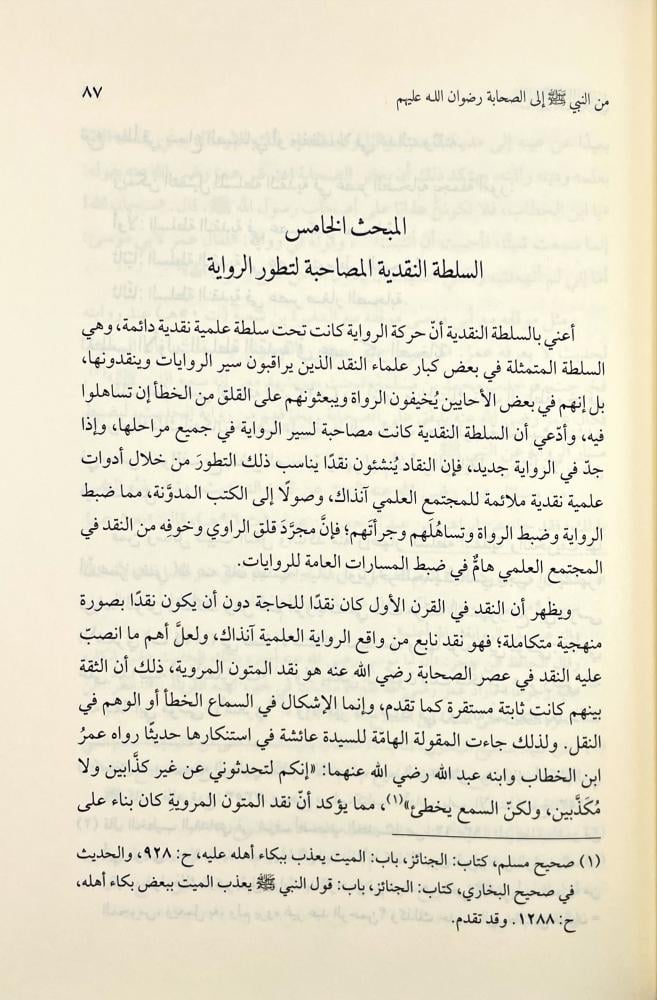 من النبي ﷺ إلى الصحابة رضوان اللـه عليهم
٨٧
المبحث الخامس
السلطة النقدية المصاحبة لتطور الرواية
أعني بالسلطة النقدية أنّ حركة الرواية كانت تحت سلطة علمية نقدية دائمة، وهي
السلطة المتمثلة في بعض كبار علماء النقد الذين يراقبون سير الروايات وينقدونها،
بل إنهم في بعض الأحايين يُخيفون الرواة ويبعثونهم على القلق من الخطأ إن تساهلوا
فيه، وأدّعي أن السلطة النقدية كانت مصاحبة لسير الرواية في جميع مراحلها، وإذا
جدّ في الرواية جديد، فإن النقاد يُنشئون نقدًا يناسب ذلك التطورَ من خلال أدوات
علمية نقدية ملائمة للمجتمع العلمي آنذاك، وصولًا إلى الكتب المدوَّنة، مما ضبط
الرواية وضبط الرواة وتساهُلَهم وجرأتَهم؛ فإنَّ مجرَّدَ قلق الراوي وخوفِه من النقد في
المجتمع العلمي هامٌّ في ضبط المسارات العامة للروايات.
ويظهر أن النقد في القرن الأول كان نقدًا للحاجة دون أن يكون نقدًا بصورة
منهجية متكاملة؛ فهو نقد نابع من واقع الرواية العلمية آنذاك، ولعلَّ أهم ما انصبّ
عليه النقد في عصر الصحابة رضي الله عنه هو نقد المتون المروية، ذلك أن الثقة
بينهم كانت ثابتة مستقرة كما تقدم، وإنما الإشكال في السماع الخطأ أو الوهم في
النقل. ولذلك جاءت المقولة الهامّة للسيدة عائشة في استنكارها حديثًا رواه عمرُ
ابن الخطاب وابنه عبد الله رضي الله عنهما: «إنكم لتحدثوني عن غير كذَّابين ولا
مُكَذَّبين، ولكنّ السمع يخطئ»(١)، مما يؤكد أنّ نقد المتون المرويةِ كان بناء على
(١) صحيح مسلم، كتاب: الجنائز، باب: الميت يعذب ببكاء أهله عليه، ح: ٩٢٨، والحديث
في صحيح البخاري، كتاب: الجنائز، باب: قول النبي ﷺ يعذب الميت ببعض بكاء أهله،
ح: ١٢٨٨. وقد تقدم.